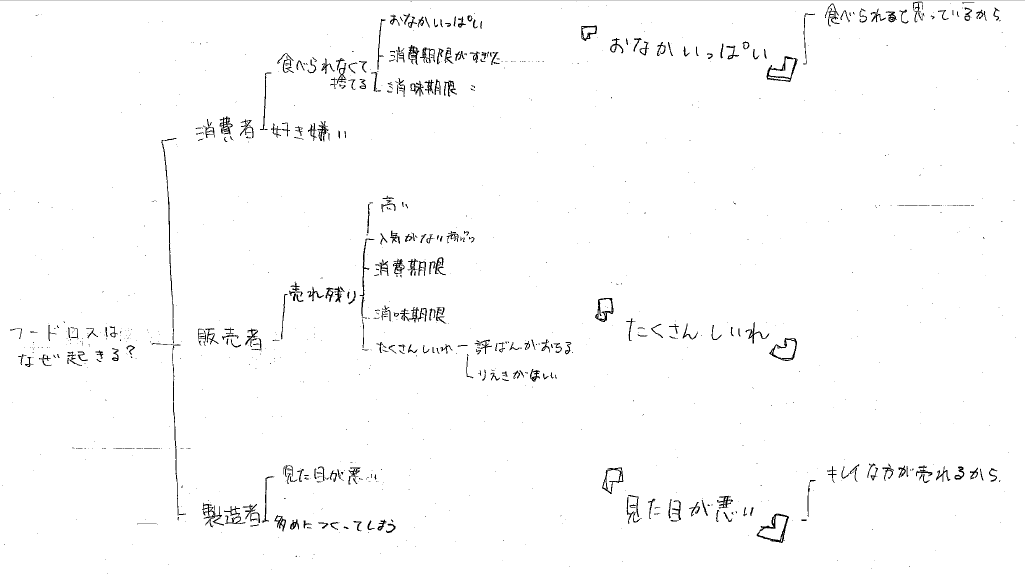 フードロスは
なぜ起きる?
消費者
食べられなくて
捨てる
おなかいっぱい
消費期限がすぎた
消味期限 〃
好き嫌い
販売者
売れ残り
高い
人気がない商品
消費期限
消味期限
たくさんしいれ
評ばんがおちる
りえきがほしい
製造者
見た目が悪い
多めにつくってしまう
『おなかいっぱい』
食べられると思っているから
『たくさんしいれ』
『見た目が悪い』
キレイな方が売れるから